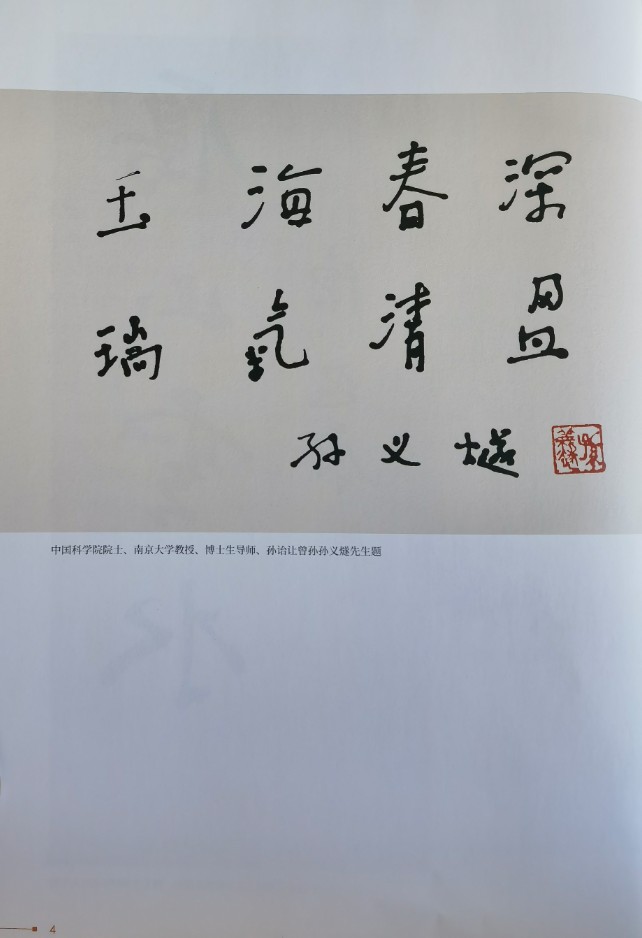 玉海春深
瑞氣清
孙义燧
中国科学院院士、南京大学教授、博士生导师、孙诒让曾孙孙义燧先生题
4